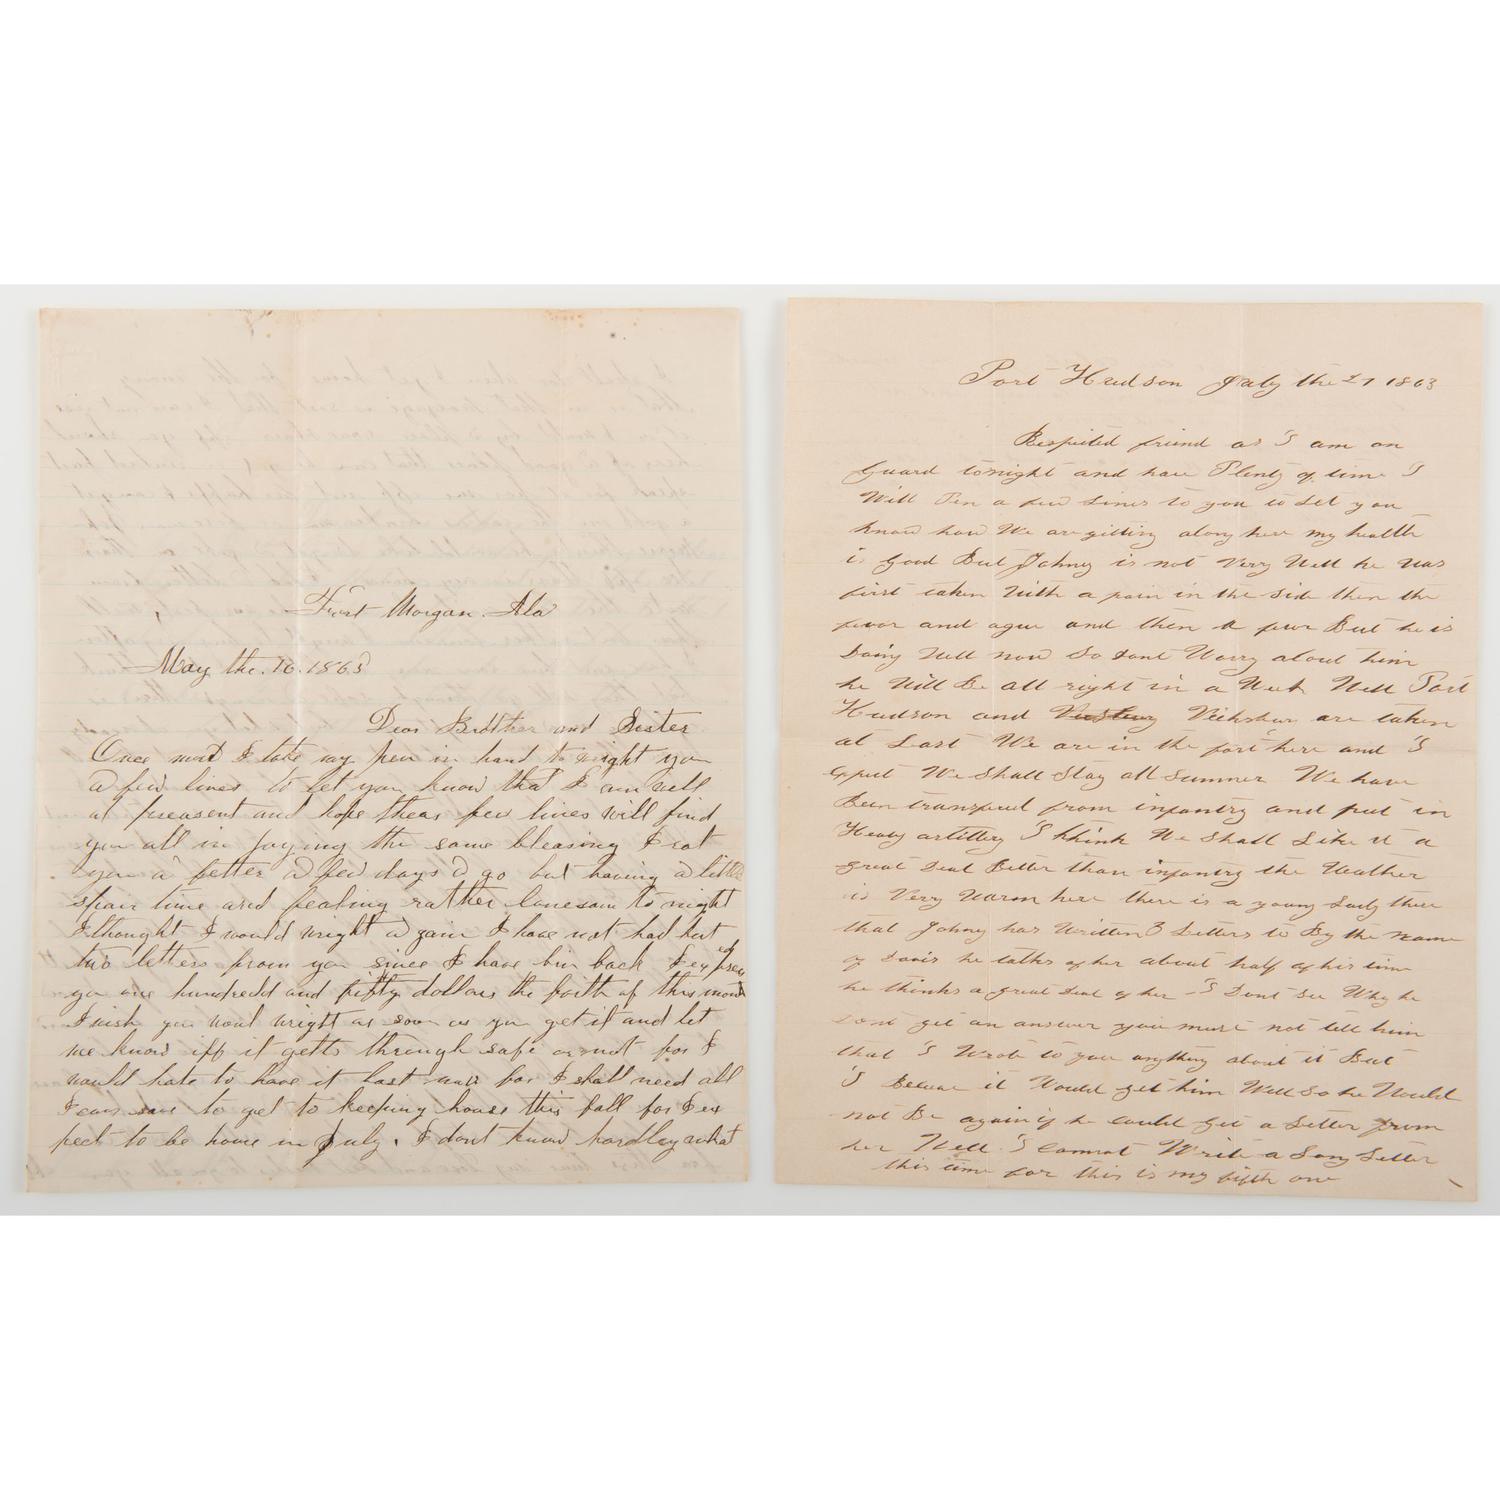 Fort Morgan. Ala
May the. 16. 1863
Dear Brother and Sister
Once more I take my pen in hand to wright you
a few lines to let you know that I am well
at preasent and hope theas few lines will find
you all in joying the same bleasing I rot
you a letter a few days a go but having a little
spair time and fealing rather lonesom to night
I thought I would wright a gain I have not had but
two letters from you since I have bin back I expresed
you one hundredd and fifty dollars the forth of this month
I wish you woul wright as soon as you get it and let
me know iff it getts through safe or not for I
would hate to have it lost now for I shall need all
I can save to get to keeping house this fall for I ex
pect to be home in July. I dont know hardley what
Port Hudson July the 1863
Respited friend as I am on
Guard tonight and have Plenty of time I
Will Pen a few Lines to you to Let you
know how We are gitting along here my health
is good But Johny is not Very Well he was
first taken With a pain in the side then the
fevor and ague and then a fevor But he is
Doing Well now So dont Worry about him
he Will Be all right in a Week Well Port
Hudson and Vicksbur are taken
at Last We are in the fort here and I
expect We Shall Stay all Summer We have
Been transfered from infantry and put in
Heavy artillery I think We Shall Like it a
great Deal Better than infantry the Weather
is Very Warm here there is a young Lady there
that Johny has Written 3 Letters to By the name
of Davis he talks of her about half of his time
he thinks a great Deal of her I Dont See Why he
Dont get an answer you must not tell him
that I Wrote to you anything about it But
I Becaus it Would get him Well So he Would
not Be again if he could get a Letter from
her Well I cannot Write a Long Letter
this time for this is my fifth one